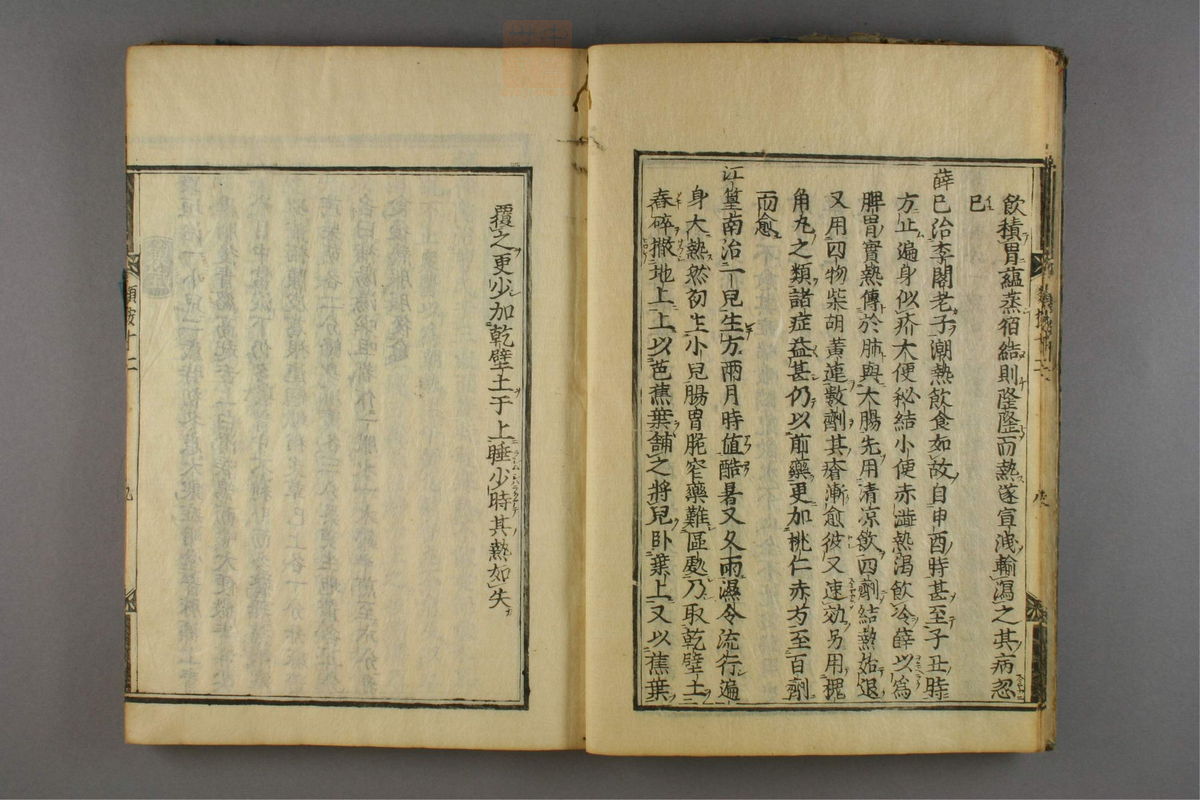 飲積胃蘊蒸宿結則隆隆而熱遂宣洩輸瀉之其病忽
已
薛已治李閣老子潮熱飲食如故自申酉時甚至子丑時
方止遍身似疥大便秘結小便赤澁熱渴飲冷薛以爲
脾胃實熱傳於肺與大腸先用清凉飲四劑結熱始退
又用四物柴胡黃連數劑其瘡漸愈彼又速効另用槐
角丸之類諸症益甚仍以前藥更加桃仁赤芍至百劑
而愈
江篁南治一兒生方兩月時值酷暑又久雨濕令流行遍
身大熱然初生小兒腸胃脆窄藥難區處乃取乾壁土
舂碎撒地上上以芭蕉葉舖之將兒卧葉上又以蕉葉
覆之更少加乾壁土于上睡少時其熱如失
類案十二
九